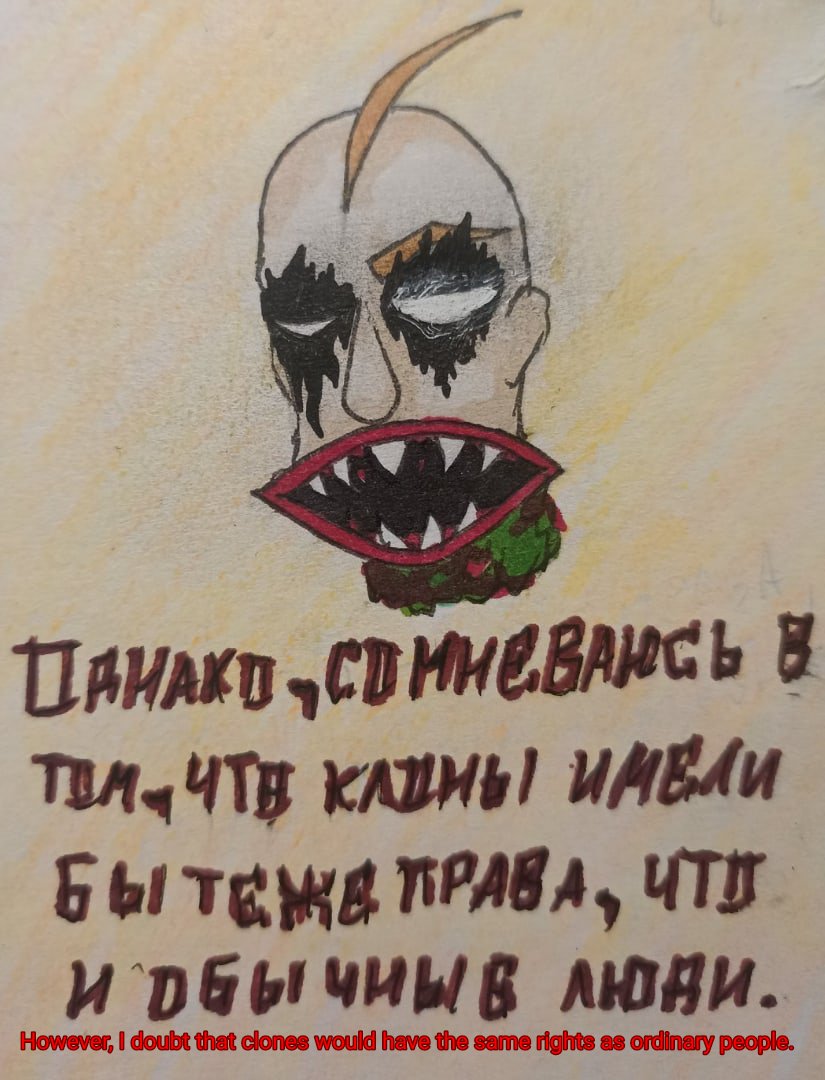 Однако, сомневаюсь в
том, что клоны имели
бы теже права, что
и обычные люди.
However, I doubt that clones would have the same rights as ordinary people.